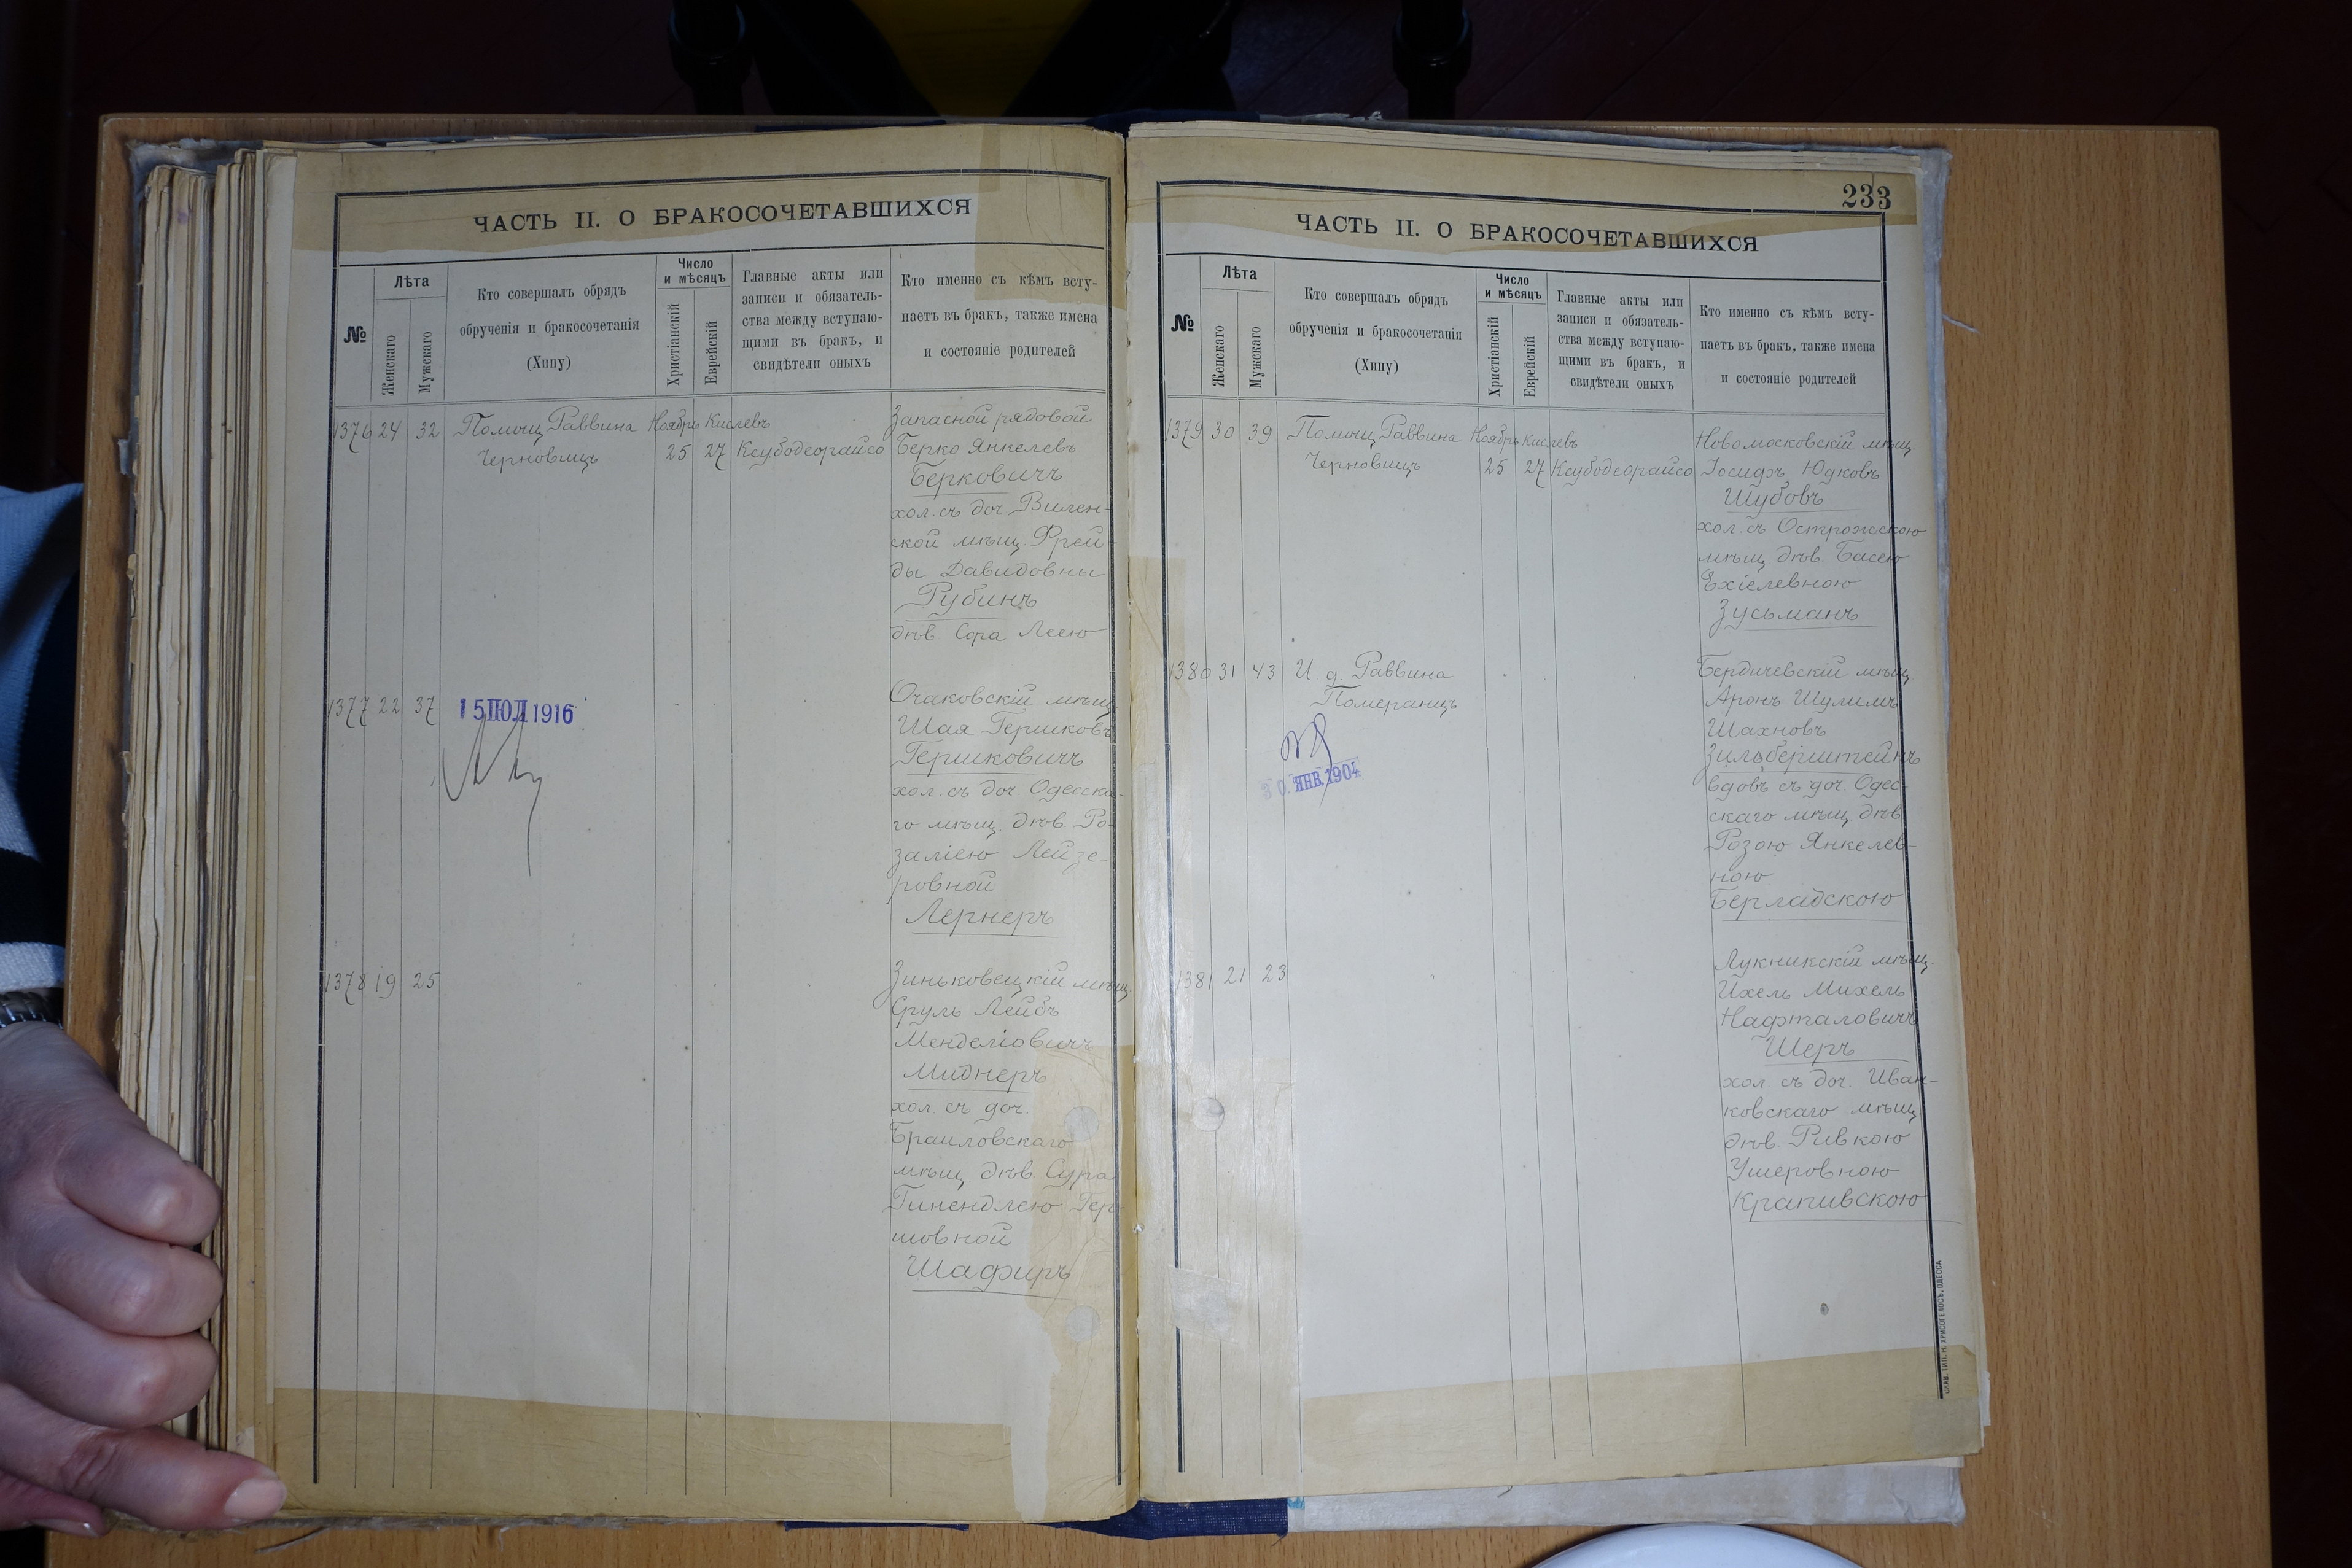 ЧАСТЬ II. О БРАКОСОЧЕТАВШИХСЯ
№
Лѣта
Женскаго
Мужскаго
Кто совершалъ обрядъ
обрученія и бракосочетанія
(Хипу)
Число
и мѣсяцъ
Христіанскій
Еврейскій
Главные акты или
записи и обязатель-
ства между вступаю-
щими въ бракъ, и
свидѣтели оныхъ
Кто именно съ кѣмъ всту-
паетъ въ бракъ, также имена
и состояніе родителей
1376 24 32 Помощ. Раввина Ноябрь Кислевъ Запасной рядовой
Черновицъ 25 27 Ксубодеорайсо Берко Янкелевъ
Берковичъ
хол. съ доч. Вилен-
ской мѣщ. Фрей-
ды Давидовны
Рубинъ
дѣв. Сора Леею
1377 22 37 15 ІЮЛ 1916 Очаковскій мѣщ.
Шая Гершковъ
Гершковичъ
хол. съ доч. Одесска-
го мѣщ. дѣв. Ро-
заліею Лейзе-
ровной
Лернеръ
1378 19 25 Зиньковецкій мѣщ.
Сруль Лейбъ
Менделіовичъ
Миднеръ
хол. съ доч.
Браиловскаго
мѣщ. дѣв. Сура
Гинендлею Гер-
шовной
Шафиръ
233
ЧАСТЬ II. О БРАКОСОЧЕТАВШИХСЯ
№
Лѣта
Женскаго
Мужскаго
Кто совершалъ обрядъ
обрученія и бракосочетанія
(Хипу)
Число
и мѣсяцъ
Христіанскій
Еврейскій
Главные акты или
записи и обязатель-
ства между вступаю-
щими въ бракъ, и
свидѣтели оныхъ
Кто именно съ кѣмъ всту-
паетъ въ бракъ, также имена
и состояніе родителей
1379 30 39 Помощ. Раввина Ноябрь Кислевъ Новомосковскій мѣщ.
Черновицъ 25 27 Ксубодеорайсо Іосифъ Юдковъ
Шубовъ
хол. съ Острожскою
мѣщ. дѣв. Басею
Ехіелевною
Зусьманъ
1380 31 43 И. д. Раввина Бердичевскій мѣщ.
Померанцъ Аронъ Шулимъ
Шахновъ
30. ЯНВ. 1904 Зильберштейнъ
вдовъ съ доч. Одес-
скаго мѣщ. дѣв.
Розою Янкелев-
ною
Берладскою
1381 21 23 Лукникскій мѣщ.
Ихель Михель
Нафталовичъ
Шеръ
хол. съ доч. Иван-
ковскаго мѣщ.
дѣв. Ривкою
Ушеровною
Крапивскою
СЛАВ. ТИП. Н. ХРИСОГЕЛОСЪ, ОДЕССА